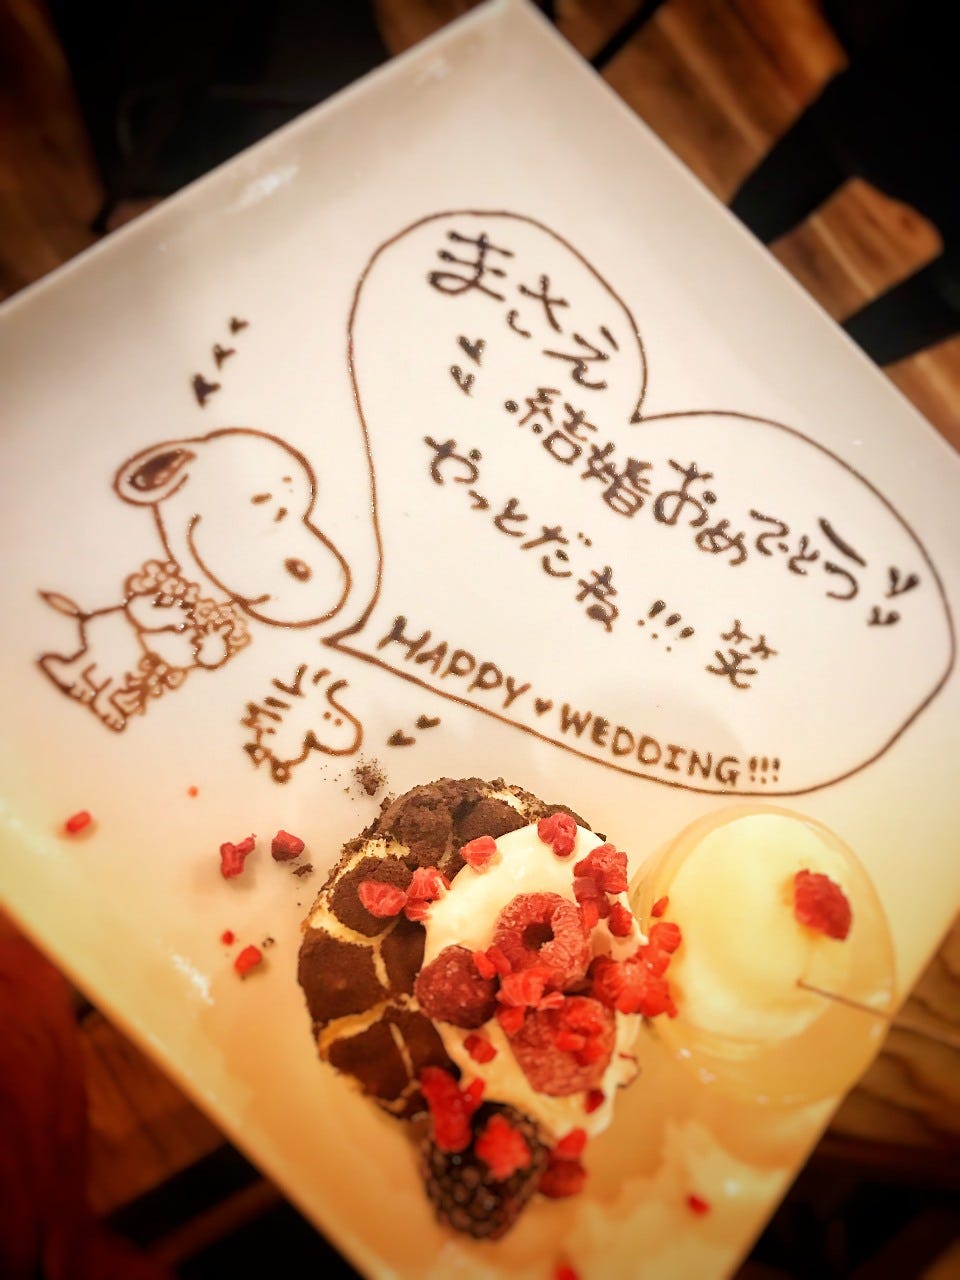 まさえ
結婚おめでとう
やっとだね!!! 笑
HAPPY♥WEDDING!!!